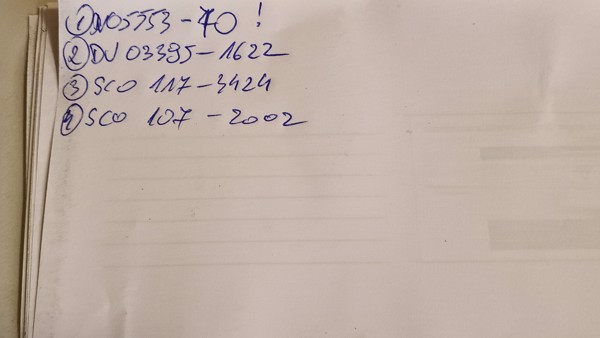 ① NO5553-70 !
② DJ 03395-1622
③ SCO 117-3424
④ SCO 107-2002